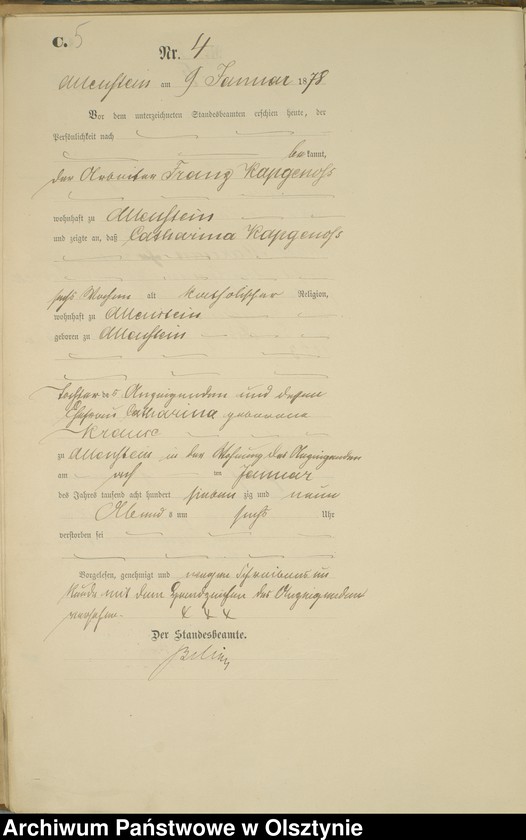 C. 5
Nr. 4
Allenstein am 9 Januar 1878
Vor dem unterzeichneten Standesbeamten erschien heute, der
Persönlichkeit nach
bekannt,
der Arbeiter Franz
wohnhaft zu Allenstein
und zeigte an, daß Catharina
sechs Wochen alt katholischer Religion,
wohnhaft zu Allenstein
geboren zu Allenstein
Tochter des Anzeigenden und dessen
Ehefrau Catharina geborene
zu Allenstein in der Wohnung des Anzeigenden
am acht ten Januar
des Jahres tausend acht hundert sieben zig und
Abends um sechs Uhr
verstorben sei
Vorgelesen, genehmigt und wegen Schreibens un
kunde mit dem Handzeichen des Anzeigenden
versehen. x x x
Der Standesbeamte.
Archiwum Państwowe w Olsztynie